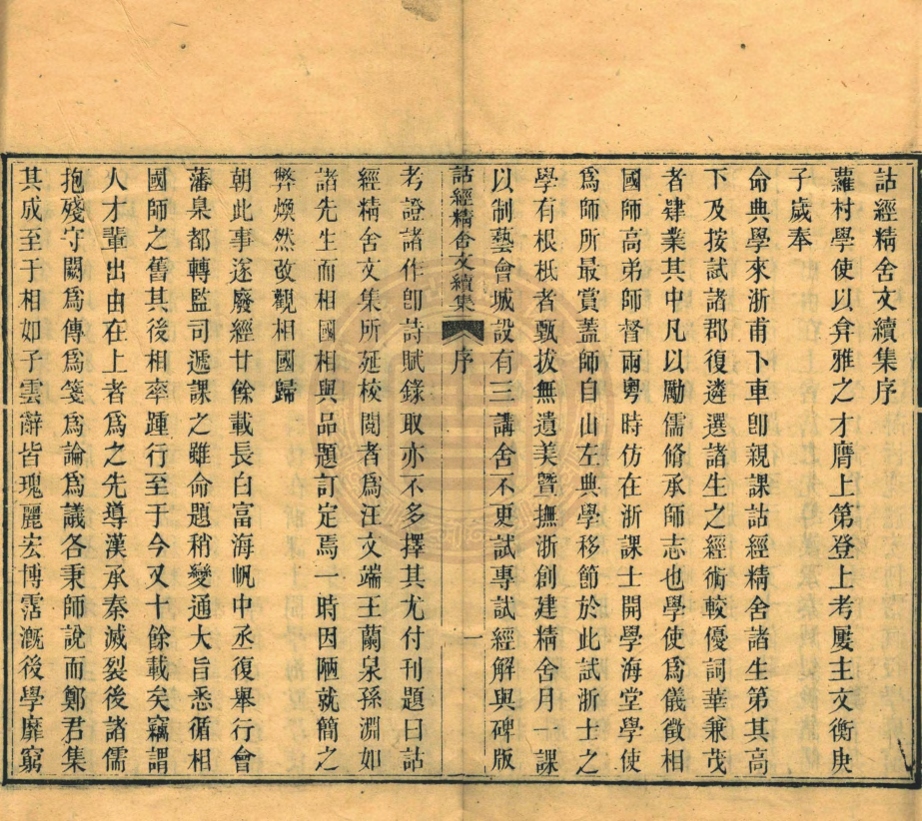 詁經精舍文續集序
蘿村學使以弇雅之才膺上第登上考屢主文衡庚
子歲奉
命典學來浙甫下車卽親課詁經精舍諸生第其高
下及按試諸郡復遴選諸生之經術較優詞華兼茂
者肄業其中凡以勵儒脩承師志也學使爲儀徵相
國師高弟師督兩粵時仿在浙課士開學海堂學使
爲師所最賞蓋師自山左典學移節於此試浙士之
學有根柢者甄拔無遺美暨撫浙創建精舍月一課
以制藝會城設有三講舍不更試專試經解與碑版
詁經精舍文續集 序 一
考證諸作卽詩賦錄取亦不多擇其尤付刊題曰詁
經精舍文集所延校閱者爲汪文端王蘭泉孫淵如
諸先生而相國相與品題訂定焉一時因陋就簡之
弊煥然改觀相國歸
朝此事遂廢經廿餘載長白富海帆中丞復舉行會
藩臬都轉監司遞課之雖命題稍變通大旨悉循相
國師之舊其後相率踵行至于今又十餘載矣竊謂
人才輩出由在上者爲之先導漢承秦滅裂後諸儒
抱殘守闕爲傳爲箋爲論爲議各秉師說而鄭君集
其成至于相如子雲辭皆瑰麗宏博霑溉後學靡窮